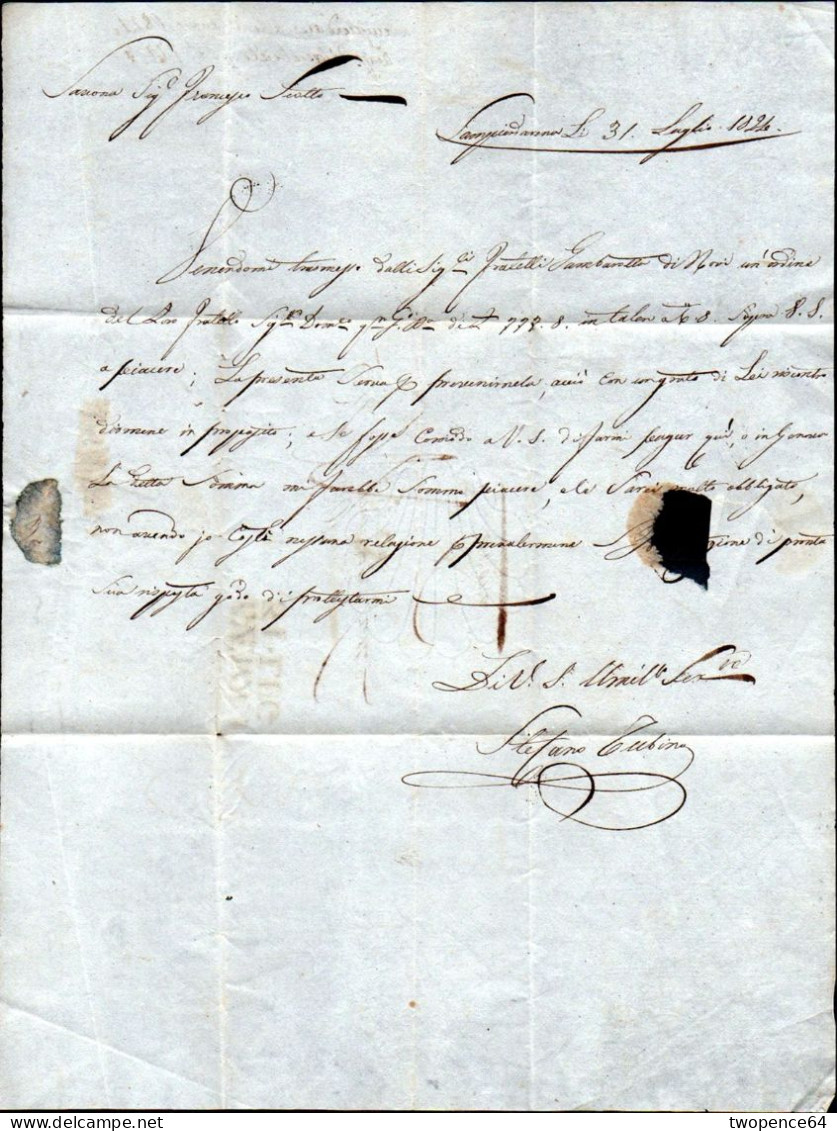 Savona Sig.r Francesco Scotto
Sampierdarena Li 31. Luglio 1824
Venendomi trasmesso dalli Sig.ri Fratelli Gambarotta di Novi un'ordine
del Loro Fratello Sig.r Dom.co di 773.8. in talon a 8 Sopra V.S.
a piacere; La presente Serva p prevenirnela, acciò con un grato di Lei riscontro
in proposito; e Se fosse Comodo a V.S. di farmi pagar quì, o in Genova
La detta Somma mi farebbe Sommo piacere, e le Sarei molto obbligato,
non avendo jo Costì nessuna relazione di pronta
Sua risposta godo di protestarmi
Di V.S. Umil.o Ser.re
Stefano Tubino
twopence64